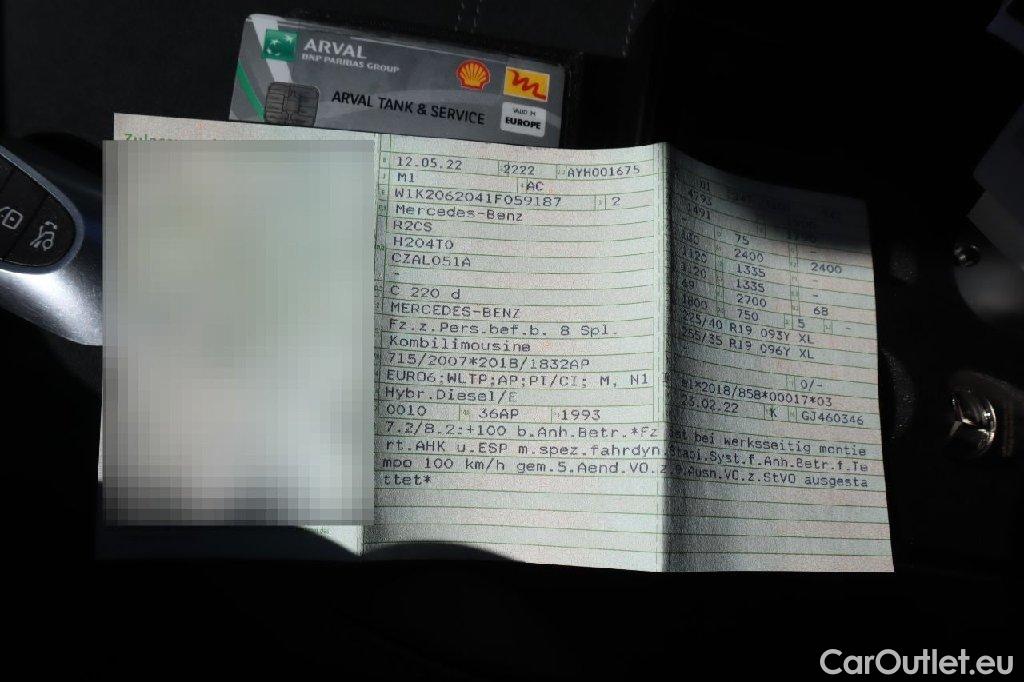 ARVAL
BNP PARIBAS GROUP
ARVAL TANK & SERVICE
VALID IN
EUROPE
12.05.22 2222 AYH001675
M1 AC
W1K2062041F059187 2
Mercedes-Benz
R2CS
H204T0
CZAL051A
-
C 220 d
MERCEDES-BENZ
Fz.z.Pers.bef.b. 8 Spl.
Kombilimousine
715/2007*2018/1832AP
EURO6;WLTP;AP;PI/CI; M, N1
Hybr.Diesel/E
0010 36AP 1993
01
4793
1491
75
2400 2400
1120 1335 -
1120 1335 -
49 2700 68
1800 750 5 -
225/40 R19 093Y XL
255/35 R19 096Y XL
0/-
e1*2018/858*00017*03
23.02.22 K GJ460346
7.2/8.2:+100 b.Anh.Betr.*Fz ist bei werksseitig montie
rt.AHK u.ESP m.spez.fahrdyn.Stabi.Syst.f.Anh.Betr.f.Te
mpo 100 km/h gem.5.Aend.VO.z.9.Ausn.VO.z.StVO ausgesta
ttet*
CarOutlet.eu